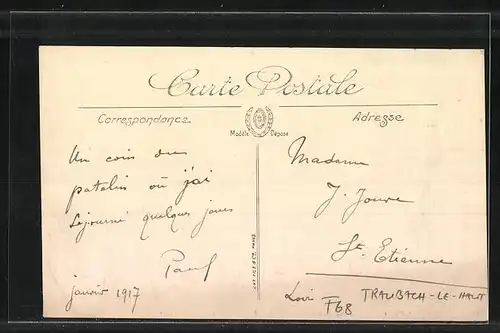 Carte Postale
Correspondance
Adresse
Modèle Déposé
Un coin du
patelin où j'ai
séjourné quelques jours
Paul
janvier 1917
Madame
J. Jouve
St. Etienne
Loire
F68
TRAUBACH-LE-HAUT